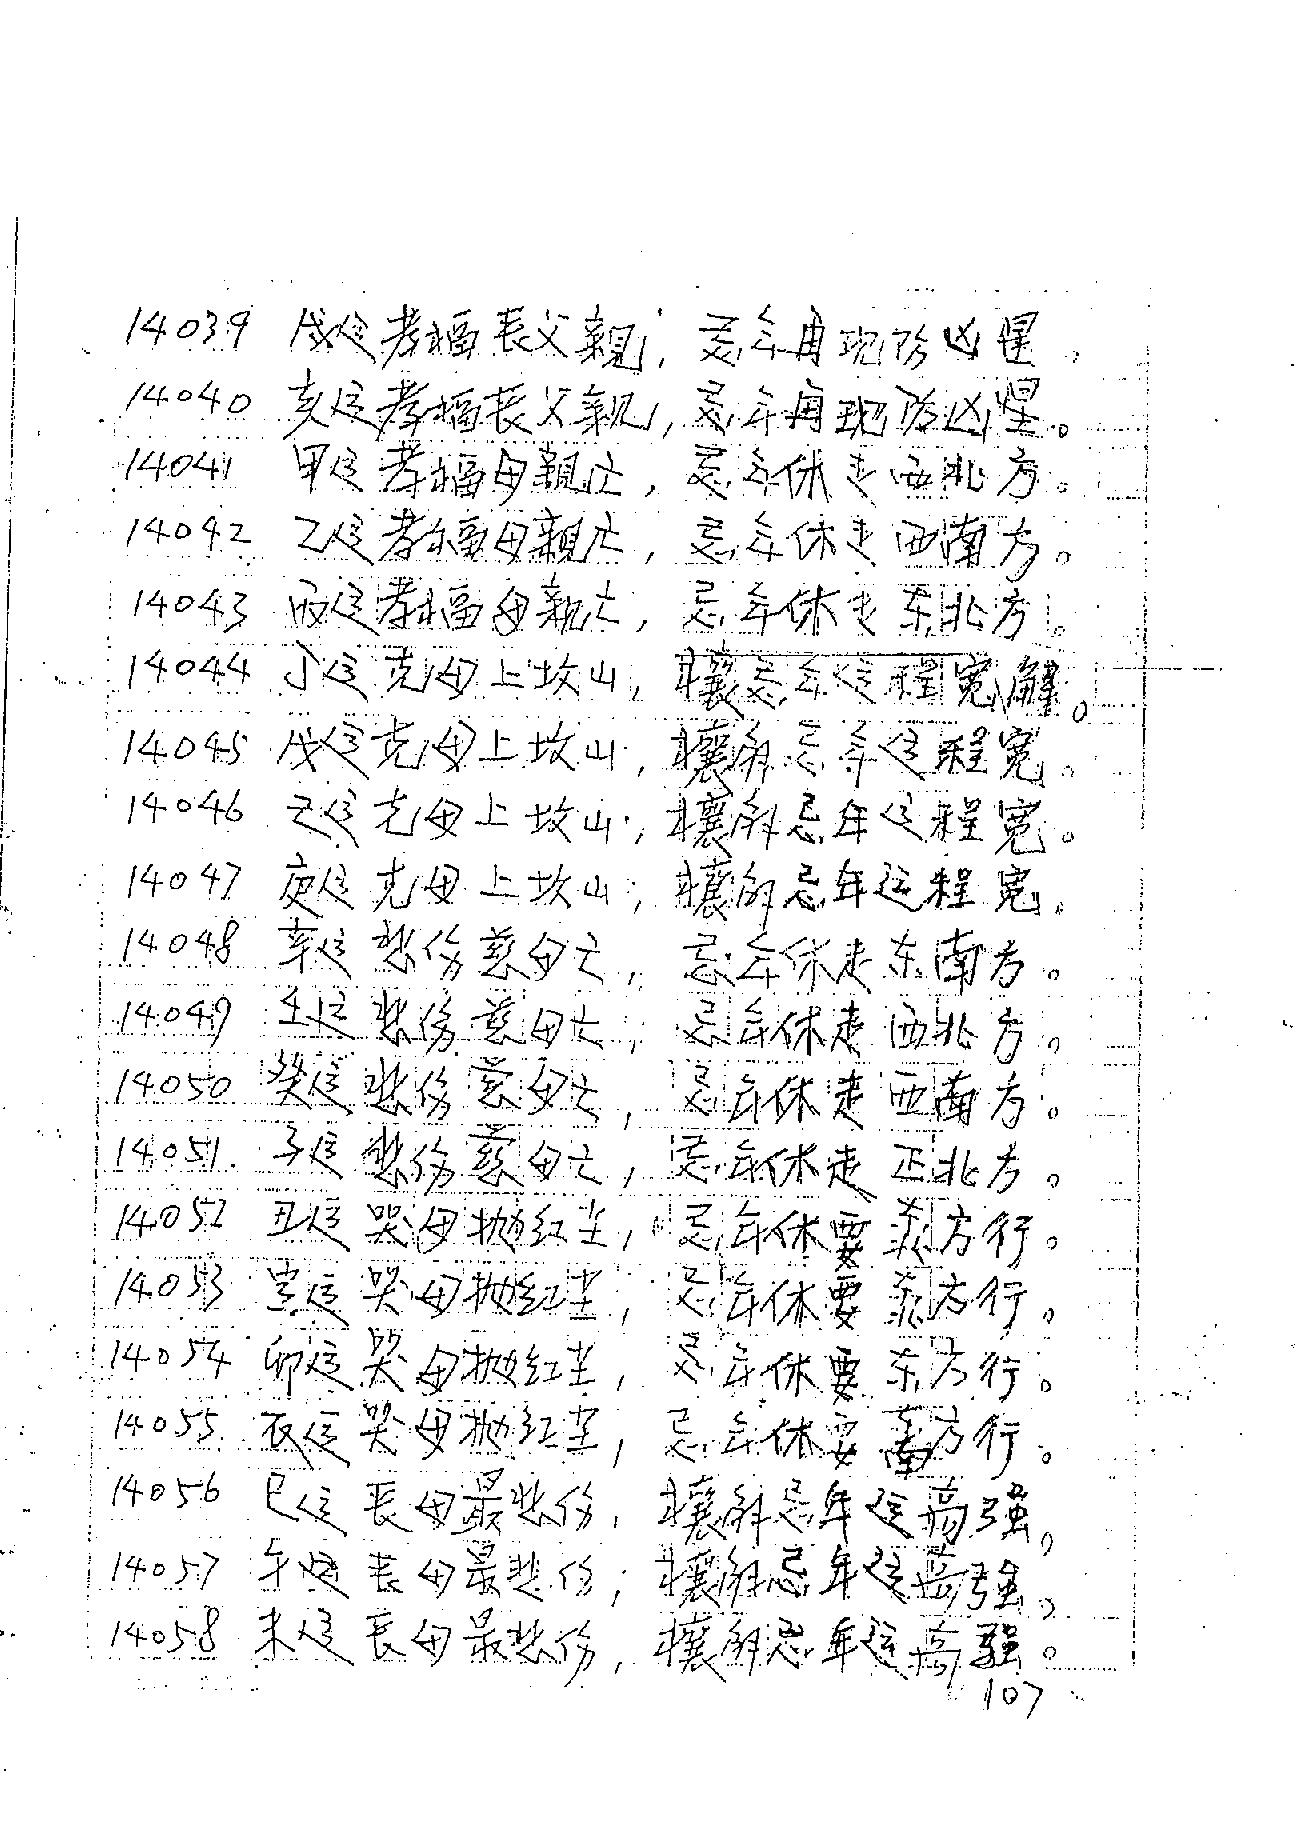 14039 戌运孝福丧父親，忌年再现防凶星。
14040 亥运孝福丧父親，忌年再现防凶星。
14041 甲运孝福母親亡，忌年休走西北方。
14042 乙运孝福母親亡，忌年休走西南方。
14043 丙运孝福母親亡，忌年休走东北方。
14044 丁运克母上坟山，禳忌年运程宽解。
14045 戊运克母上坟山，禳解忌年运程宽。
14046 己运克母上坟山，禳解忌年运程宽。
14047 庚运克母上坟山，禳解忌年运程宽。
14048 辛运悲伤慈母亡，忌年休走东南方。
14049 壬运悲伤慈母亡，忌年休走西北方。
14050 癸运悲伤慈母亡，忌年休走西南方。
14051 子运悲伤慈母亡，忌年休走正北方。
14052 丑运哭母抛红尘，忌年休要 方行。
14053 寅运哭母抛红尘，忌年休要 方行。
14054 卯运哭母抛红尘，忌年休要东方行。
14055 辰运哭母抛红尘，忌年休要南方行。
14056 巳运丧母最悲伤，禳解忌年运高强。
14057 午运丧母最悲伤，禳解忌年运高强。
14058 未运丧母最悲伤，禳解忌年运高强。
107